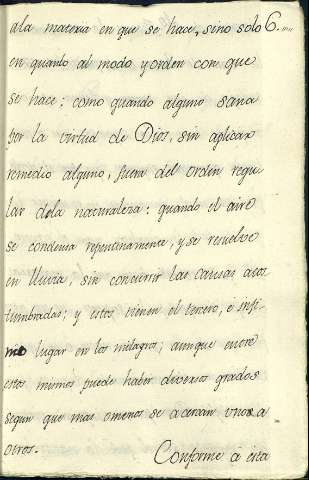 ala materia en que se hace, sino solo 6....
en quanto al modo y orden con que
se hace; como quando alguno sana
por la virtud de Dios, sin aplicar
remedio alguno, fuera del orden regu
lar dela naturaleza: quando el aire
se condensa repentinamente, y se resuelve
en lluvia, sin concurrir las causas acos
tumbradas; y estos tienen el tercero, é infi
mo lugar en los milagros; aunque entre
estos mismos puede haber diversos grados
segun que mas omenos se acercan unos a
otros.
Conforme á esta